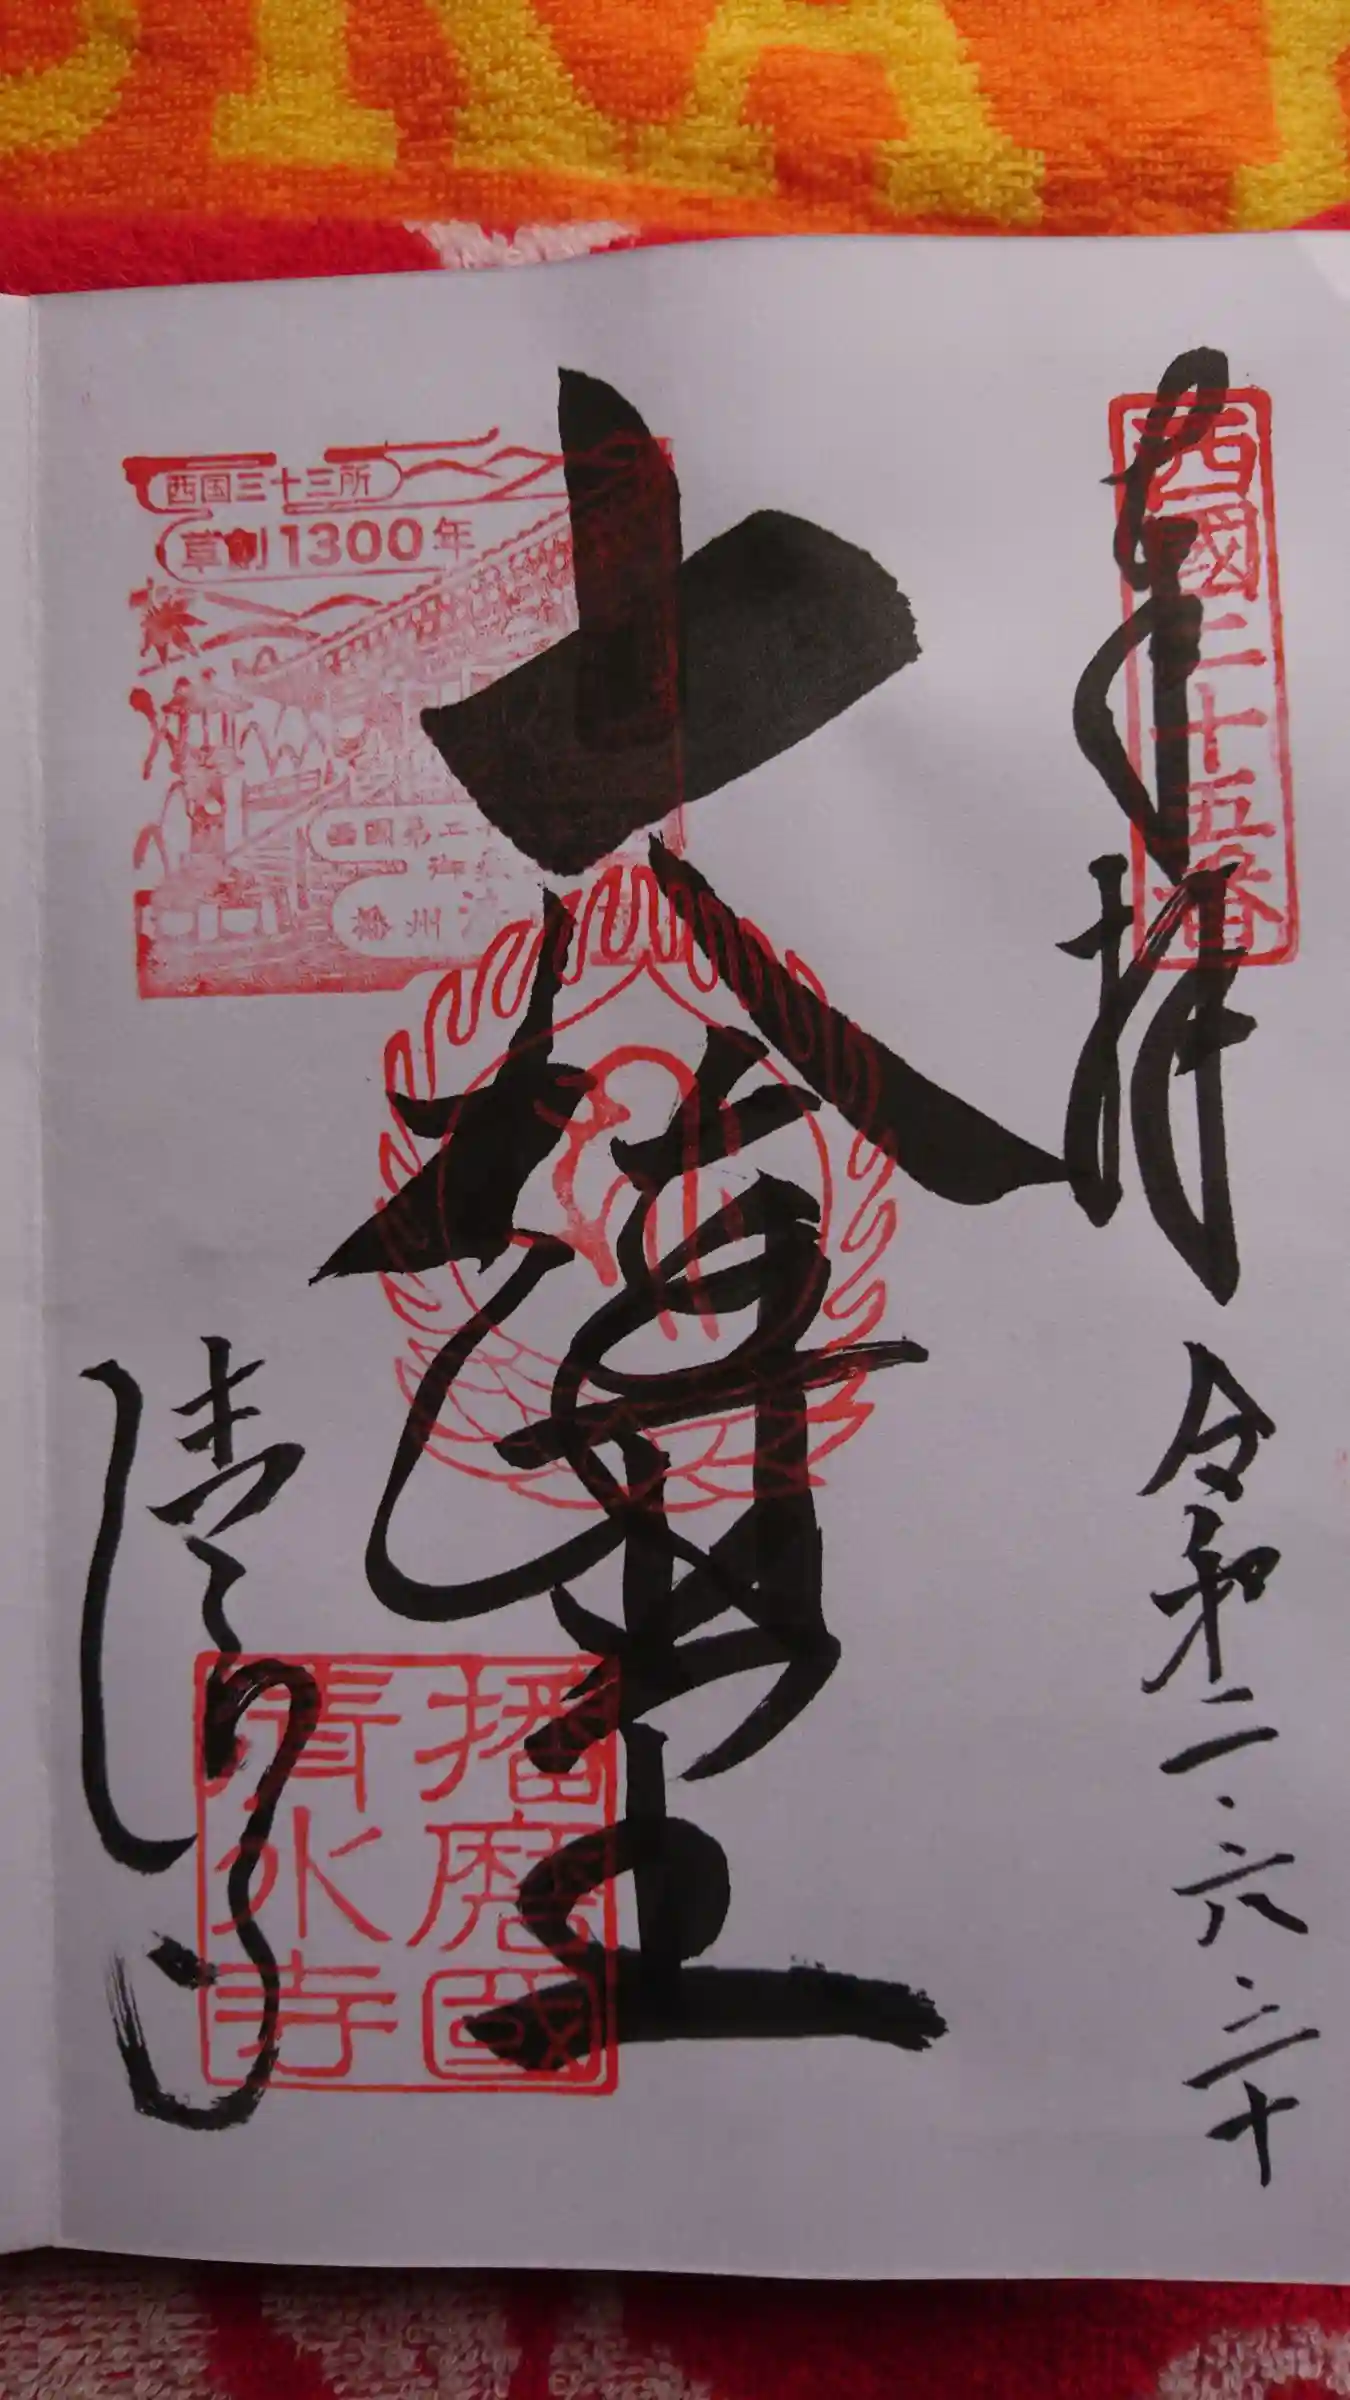 奉拝
西國二十五番
令和二・六・二十
大講堂
西国三十三所
草創1300年
西国第二十
御嶽
播州清
播磨國
清水寺
清水寺